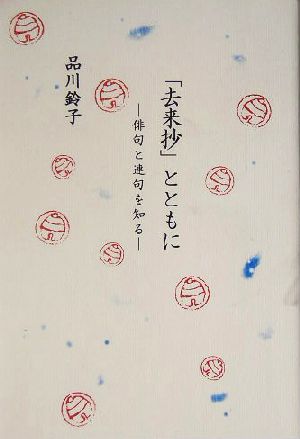 「去来抄」とともに
―俳句と連句を知る―
品川鈴子